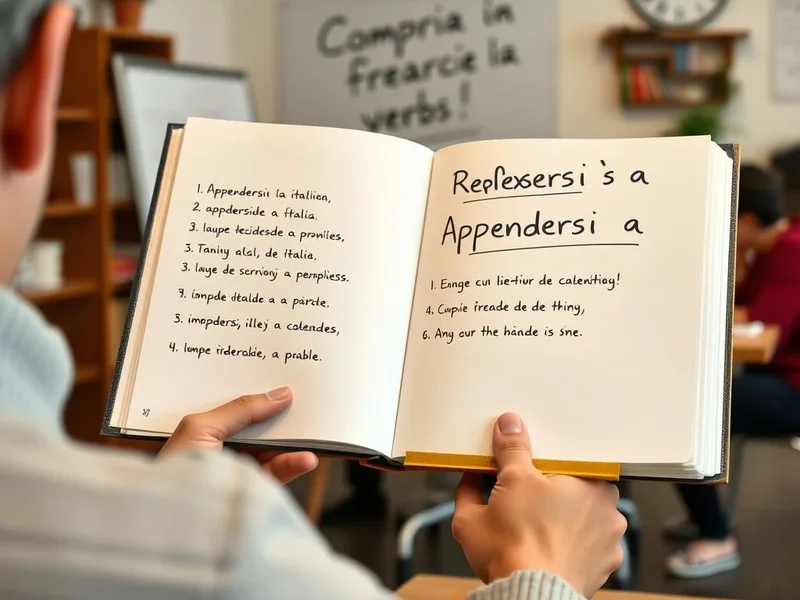 Compria in
frearcie la
verbs!
1. Appendersii la itallica,
2 appderside a ftalia.
3. laupe tecidesde a pranlles,
3. Taniny alal, de Italia.
3. lauye de serrionj a perrpliess.
7. lanpde dtalde a a parcte.
3. impderš, illej a calendes,
4. lampe irderalcie, a prable.
Repfexsersi 's a
Appendersi a
1. Eange cui lie-tiur de calentiog!
4. Cupie freade de de thiny,
6. Any our the hande is sne.